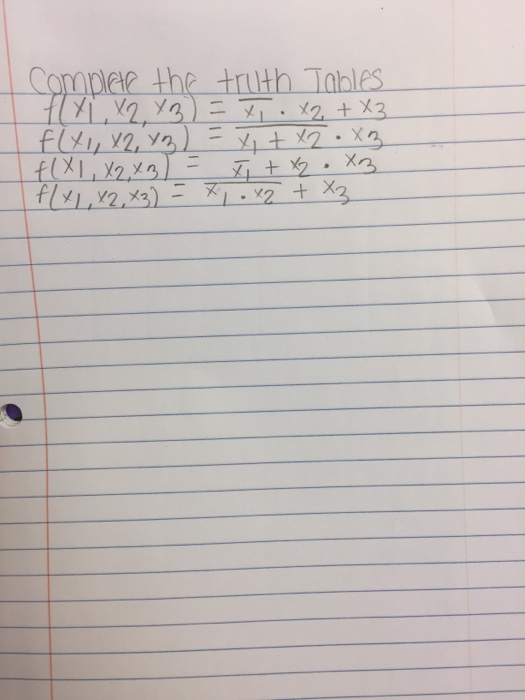 Complete the truth Tables
f(x1, x2, x3) = x̅1̅ · x2 + x3
f(x1, x2, x3) = x̅1̅ ̅+̅ ̅x̅2̅ · x3
f(x1, x2, x3) = x̅1̅ + x2 · x3
f(x1, x2, x3) = x̅1̅ ̅·̅ ̅x̅2̅ + x3